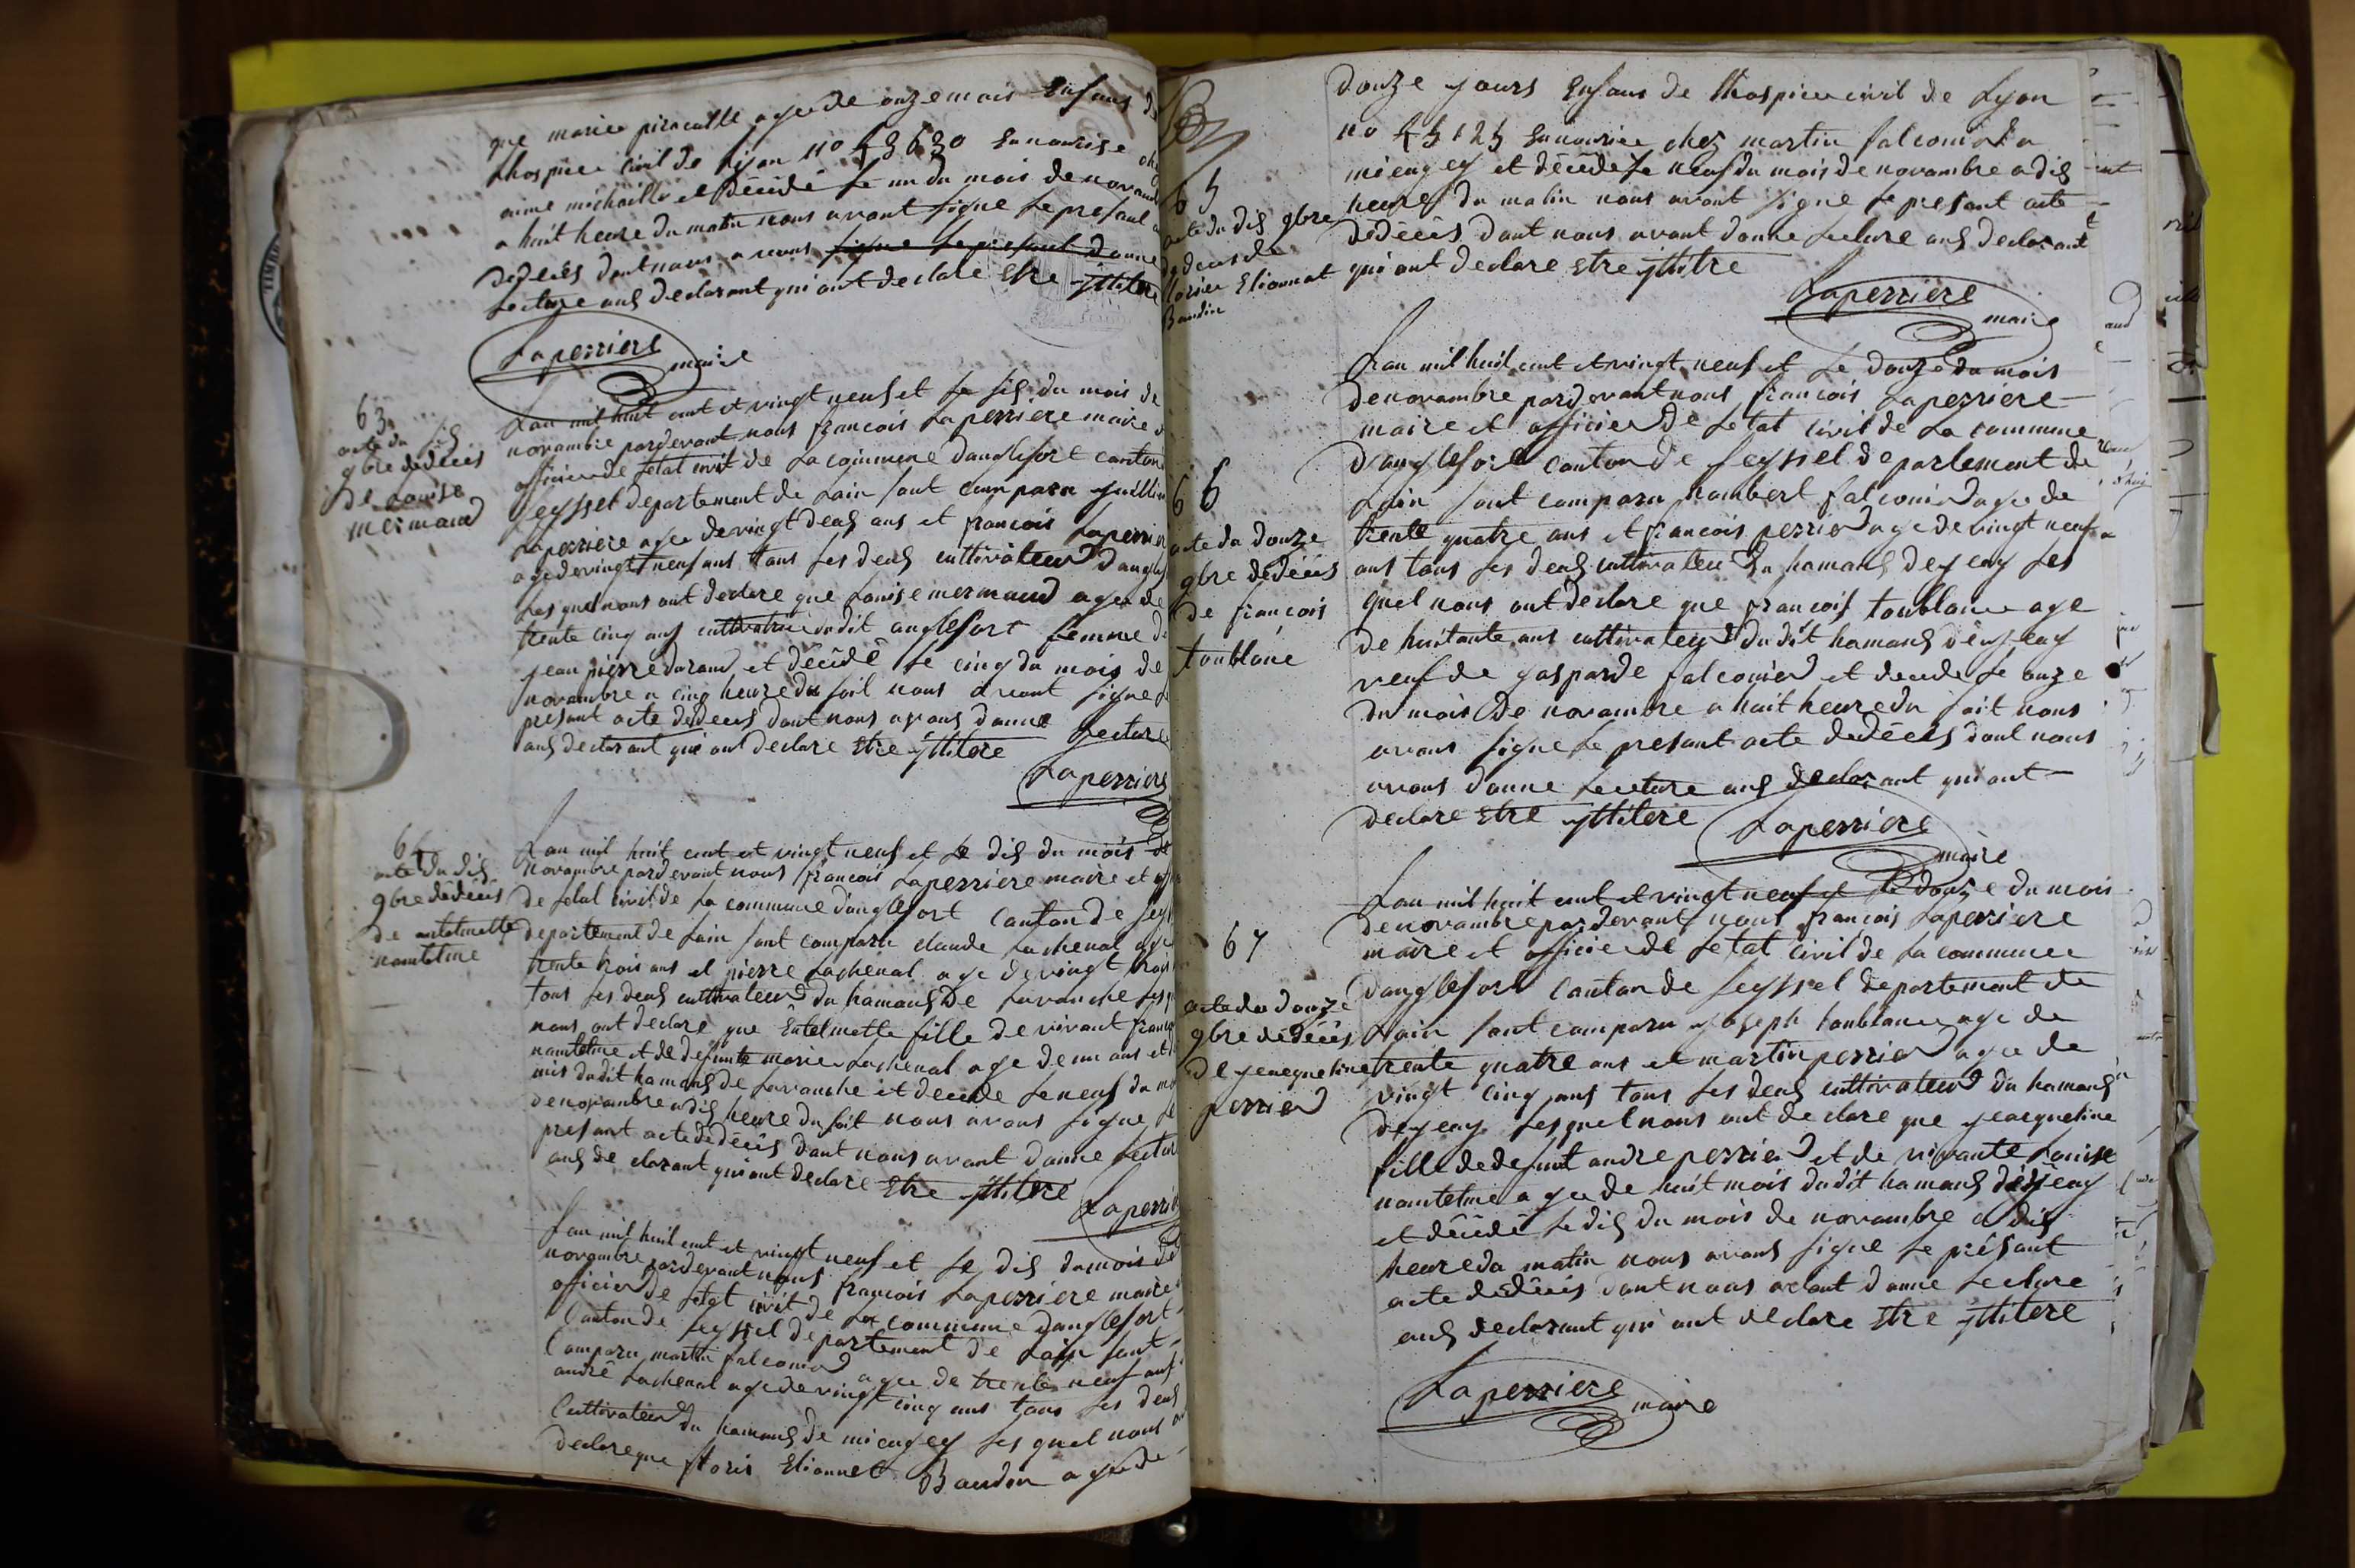 que marie piraculle agee de onze mois Enfans de
lhospice civil de lyon no 43630 En nourise chez
aime michaille et décédé le un du mois de novamb
a huit heure du matin nous avont signe le presant a
dedecés dont nous avons signe le presant donne
lecture aux declarant qui ont declare Etre yllitere
Laperriere maire
63
acte du six
9bre dedecés
de Louise
mermand
Lan mil huit cent et vingt neuf et le six du mois de
novambre pardevant nous francois Laperriere maire
officier de letat civil de la commune danglefort canton
seyssel departement de Lain sont comparu
Laperriere age de vingt deux ans et francois Laperrier
age de vingt neuf ans tous les deux cultivateur dangle
les quel nous ont declare que Louise mermand agee de
trente cinq ans cultivatrice dudit anglefort femme de
jean pierre durand et décédé le cinq du mois de
novambre a cinq heure du soil nous avont signe
presant acte dedeces dont nous avons donne lecture
aux declarant qui ont declare Etre yllitere
Laperriere
64
acte du dix
9bre dedecés
de antelmette
nantelme
Lan mil huit cent et vingt neuf et le dix du mois de
novambre pardevant nous francois Laperriere maire et
de letat civil de la commune danglefort canton de sey
departement de Lain sont comparu claude Lachenal age
trente trois ans et pierre Lachenal age de vingt trois
tous les deux cultivateur du hamaux de Lavanche
nous ont declare que Entelmette fille de vivant
nantelme et de defunte marie Lachenal age de un ans et
dudit hamaux de Lavanche et decede le neuf du
de novambre a dix heure du soit nous avons signe le
presant acte dedécés dont nous avont donne lecture
aux declarant qui ont declare Etre yllitere
Laperrie
Lan mil huit cent et vingt neuf et le dix du mois de
novambre pardevant nous francois Laperriere maire
officier de letat civil de la commune danglefort
Canton de seyssel departement de Lain sont
Comparu martin falconier agee de trente neuf ans
andré Lachenal age de vingt cinq ans tous les deux
Cultivateur du hamaux de miengey les quel nous
declare que floris Elionnet Baudin agee de
65
acte du dix 9bre
dedeces de
florier Elionnat
Baudin
douze jours Enfans de lhospice civil de Lyon
no 45125 En nourice chez martin falconier a
miengey et décéde le neuf du mois de novambre a dix
heures du matin nous avont signe le presant acte
dedécés dont nous avont donne lecture aux declarant
qui ont declare Etre yllitre
Laperriere maire
66
acte du douze
9bre dedécés
de francois
toublanc
Lan mil huit cent et vingt neuf et le douze du mois
de novambre pardevant nous francois Laperriere
maire et officier de letat civil de la commune
danglefort canton de seyssel departement de
Lain sont comparu humbert falconier age de
trente quatre ans et francois perrier age de vingt neuf
ans tous les deux cultivateur du hamaux de les
quel nous ont declare que francois toublanc age
de huitante ans cultivateur du dit hamaux
veuf de gasparde falconier et decede le onze
du mois de novambre a huit heure du soit nous
avons signe le presant acte dedécés dont nous
avons donne lecture aux declarant qui ont
declare Etre yllitere
Laperriere maire
67
acte du douze
9bre dedécés
de jeacqueline
perrier
Lan mil huit cent et vingt neuf et le douze du mois
de novambre pardevant nous francois Laperriere
maire et officier de letat civil de la commune
danglefort canton de seyssel departement de
Lain sont comparu joseph toublanc age de
trente quatre ans et martin perrier agee de
vingt cinq ans tous les deux cultivateur du hamaux
les quel nous ont declare que jeacqueline
fille de defunt andre perrier et de vivante Louise
nantelme agee de huit mois dudit hamaux
et décédé le dix du mois de novambre a dix
heure du matin nous avons signe le présant
acte dedécés dont nous avont donne lecture
aux declarant qui ont declare Etre yllitere
Laperriere maire